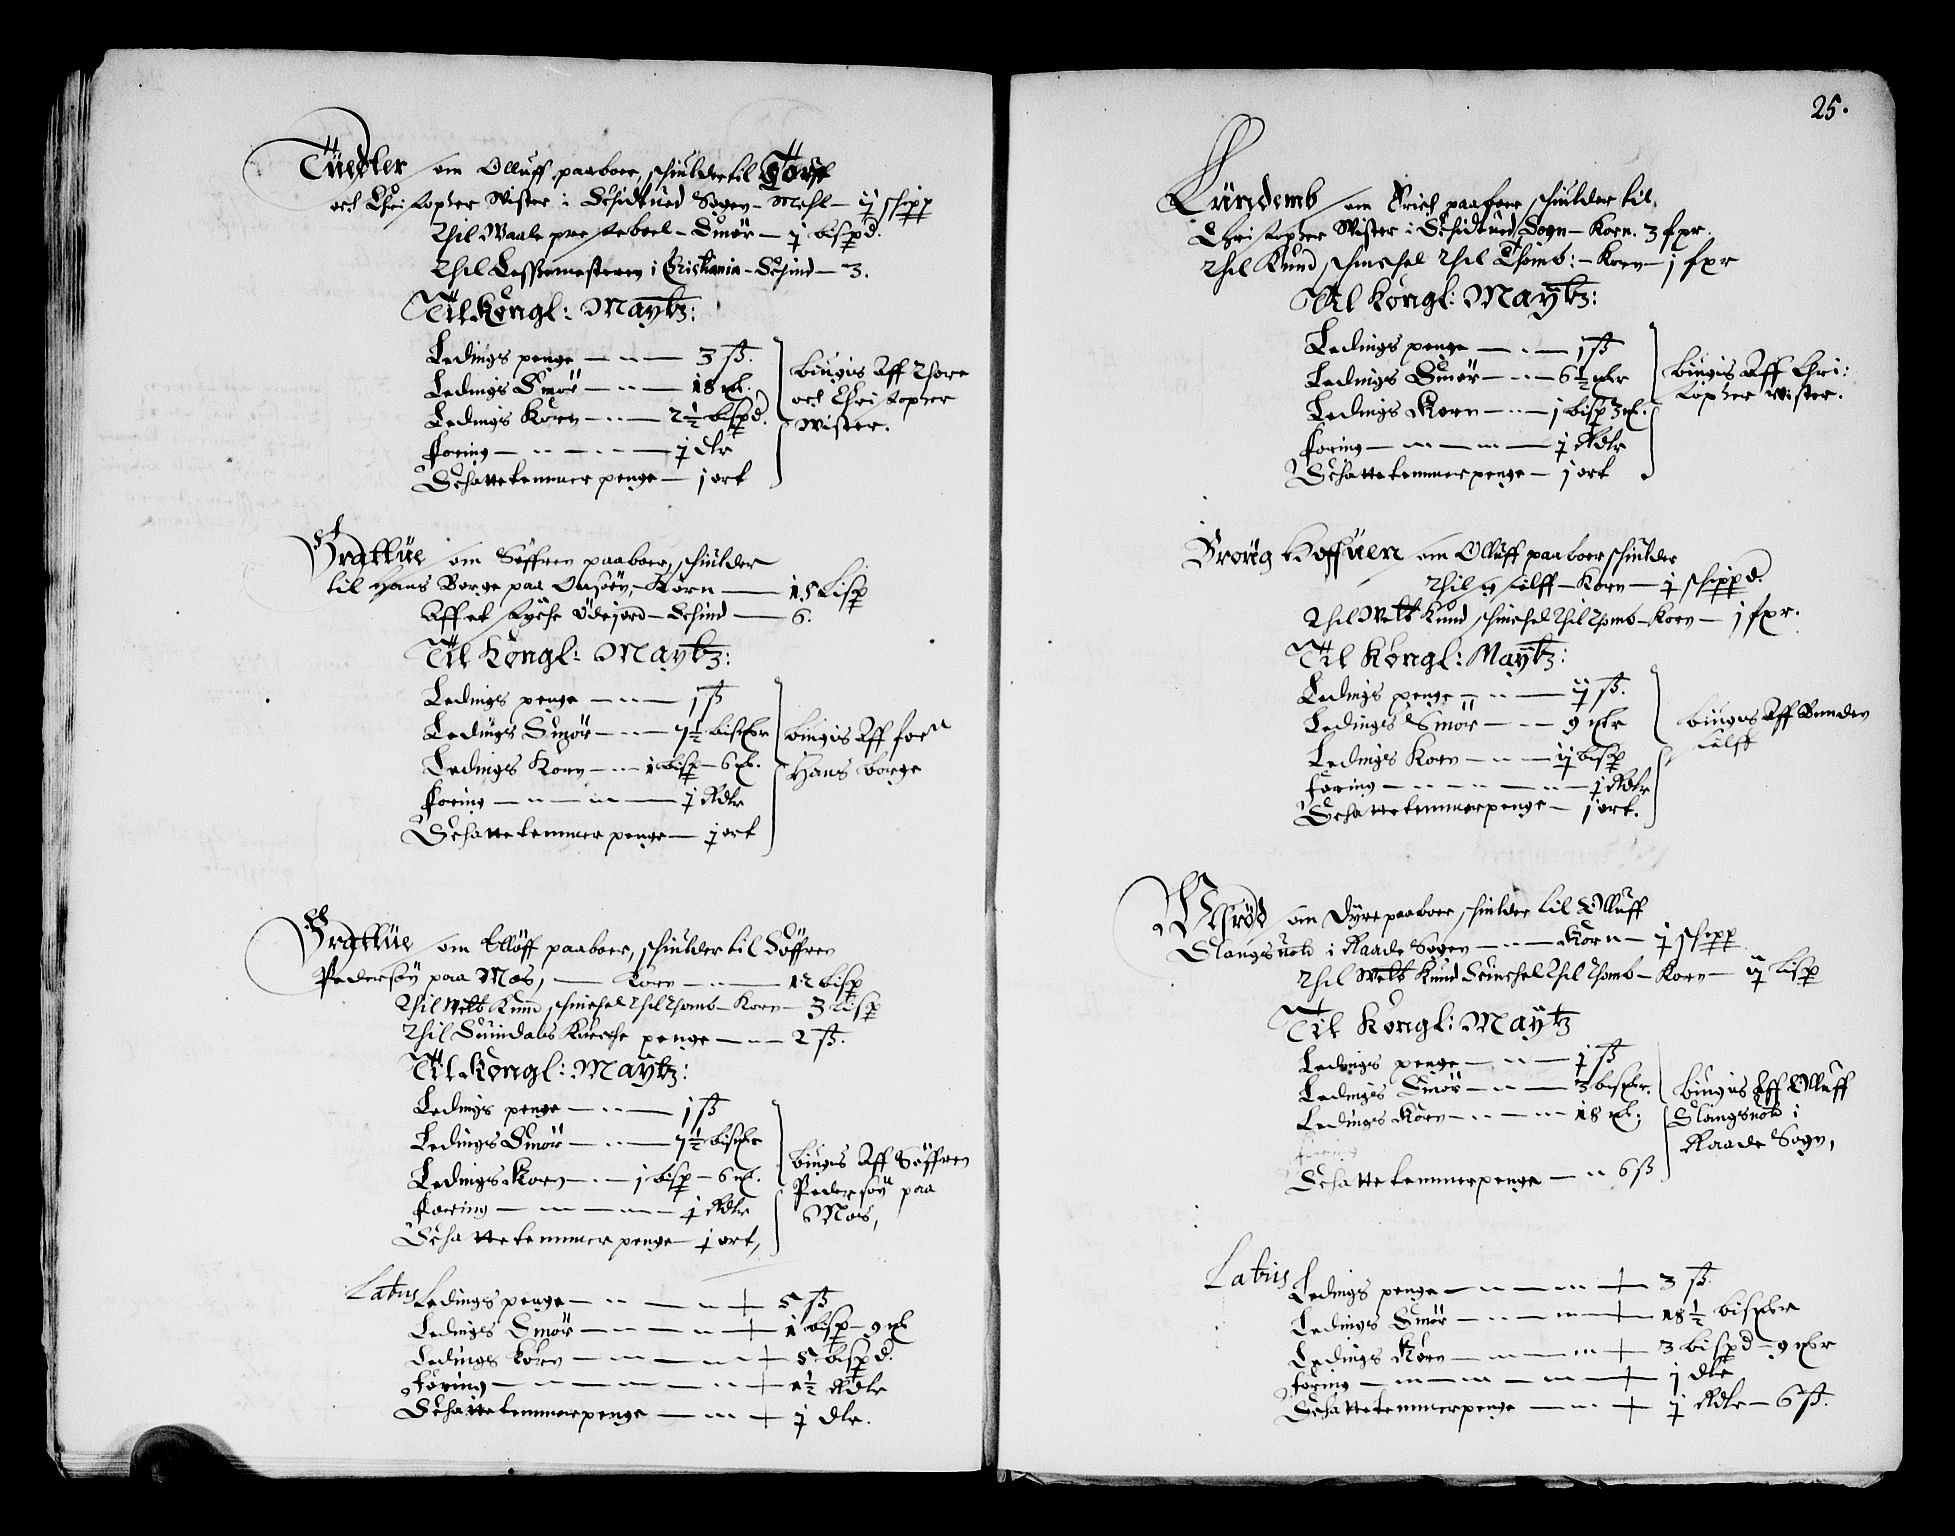 Tüedter om Olluff paaboer, schiulder til Tore
och Christopher Wister i Schidtued Sogen - Mehl - ij schipp
Thil Waale præsteboel - Smør - j bispd.
Thil Lessemesteren i Cristiania - Schind - 3.
Til Kongl: Maytz:
Ledings penge - 3 ß.
Ledings Smør - 18 mk.
Ledings Korn - 2½ bispd.
Foring - j dlr
Schattetemmer penge - j ort
bingis Aff Thore
och Christopher
Wister.
Brattlüe om Söffren paaboer, schiulder
til Hans Borge paa Onsöen, - Korn - 15 Lisp
Aff et styche Ödejord - Schind - 6.
Til Kongl: Maytz:
Ledings penge - j ß
Ledings Smør - 7½ bismkr
Ledings Korn - 1 bisp - 6 mk.
Foring - j Rdlr
Schattetemmer penge - j ort
bingis Aff
Hans borge
Brattlüe om Olluff paaboer, schiulder til Söffren
Pedersøn paa Mos, - Korn - 12 bisp
Thil Welb Knud schinchel Thil Thomb - Korn - 3 Lisp
Thil Suindals Kierche penge - 2 ß.
Til Kongl: Maytz:
Ledings penge - j ß
Ledings Smør - 7½ bismkr
Ledings Korn - j bisp - 6 mk.
Foring - j Rdlr
Schattetemmer penge - j ort,
bingis Aff Söffren
Pedersøn paa
Mos,
Latus Ledings penge - 5 ß
Ledings Smør - 1 bisp - 9 mk
Ledings korn - 5 bispd.
Foring - 1½ Rdlr
Schattetemmerpenge - j dlr.
25.
Lündemb om Erich paaboer schiulder til
Christopher Wister i Schidtued Sogn - Korn. 3 fpr.
Thil Knud schinchel Thil Thomb: - Korn - j fpr
Til Kongl: Maytz:
Ledings penge - j ß
Ledings Smør - 6½ mkr
Ledings Korn - j bisp 3 mk.
Foring - j Rdlr
Schattetemmerpenge - j ort
bingis Aff Chri:
stopher Wister.
Broug Hoffuen om Olluff paaboer schiulder
Thil sig sielff - Korn - j schippd.
Thil Welb Knud schinchel Thil Thomb - Korn - j fpr.
Til Kongl: Maytz:
Ledings penge - ij ß.
Ledings Smør - 9 mkr
Ledings Korn - ij bisp
Foring - j Rdlr
Schattetemmerpenge - j ort.
bingis Aff Bunden
sielff
om Dyre paaboer schiulder til Olluff
Slangsuold i Raade Sogen - Korn - j schipp
Thil Welb Knud Schinchel Thil Thomb - Korn - ij Lisp
Til Kongl: Maytz
Ledings penge - j ß
Ledings Smør - 3 bismkr.
Ledings Korn - 18 mk.
Schattetemmerpenge - 6 ß
bingis Aff Olluff
Slangsuold i
Raade Sogn,
Latus Ledings penge - 3 ß
Ledings Smør - 18½ bismkr
Ledings Korn - 3 bispd - 9 mkr
Foring - j dlr
Schattetemmerpenge - j Rdlr - 6 ß.